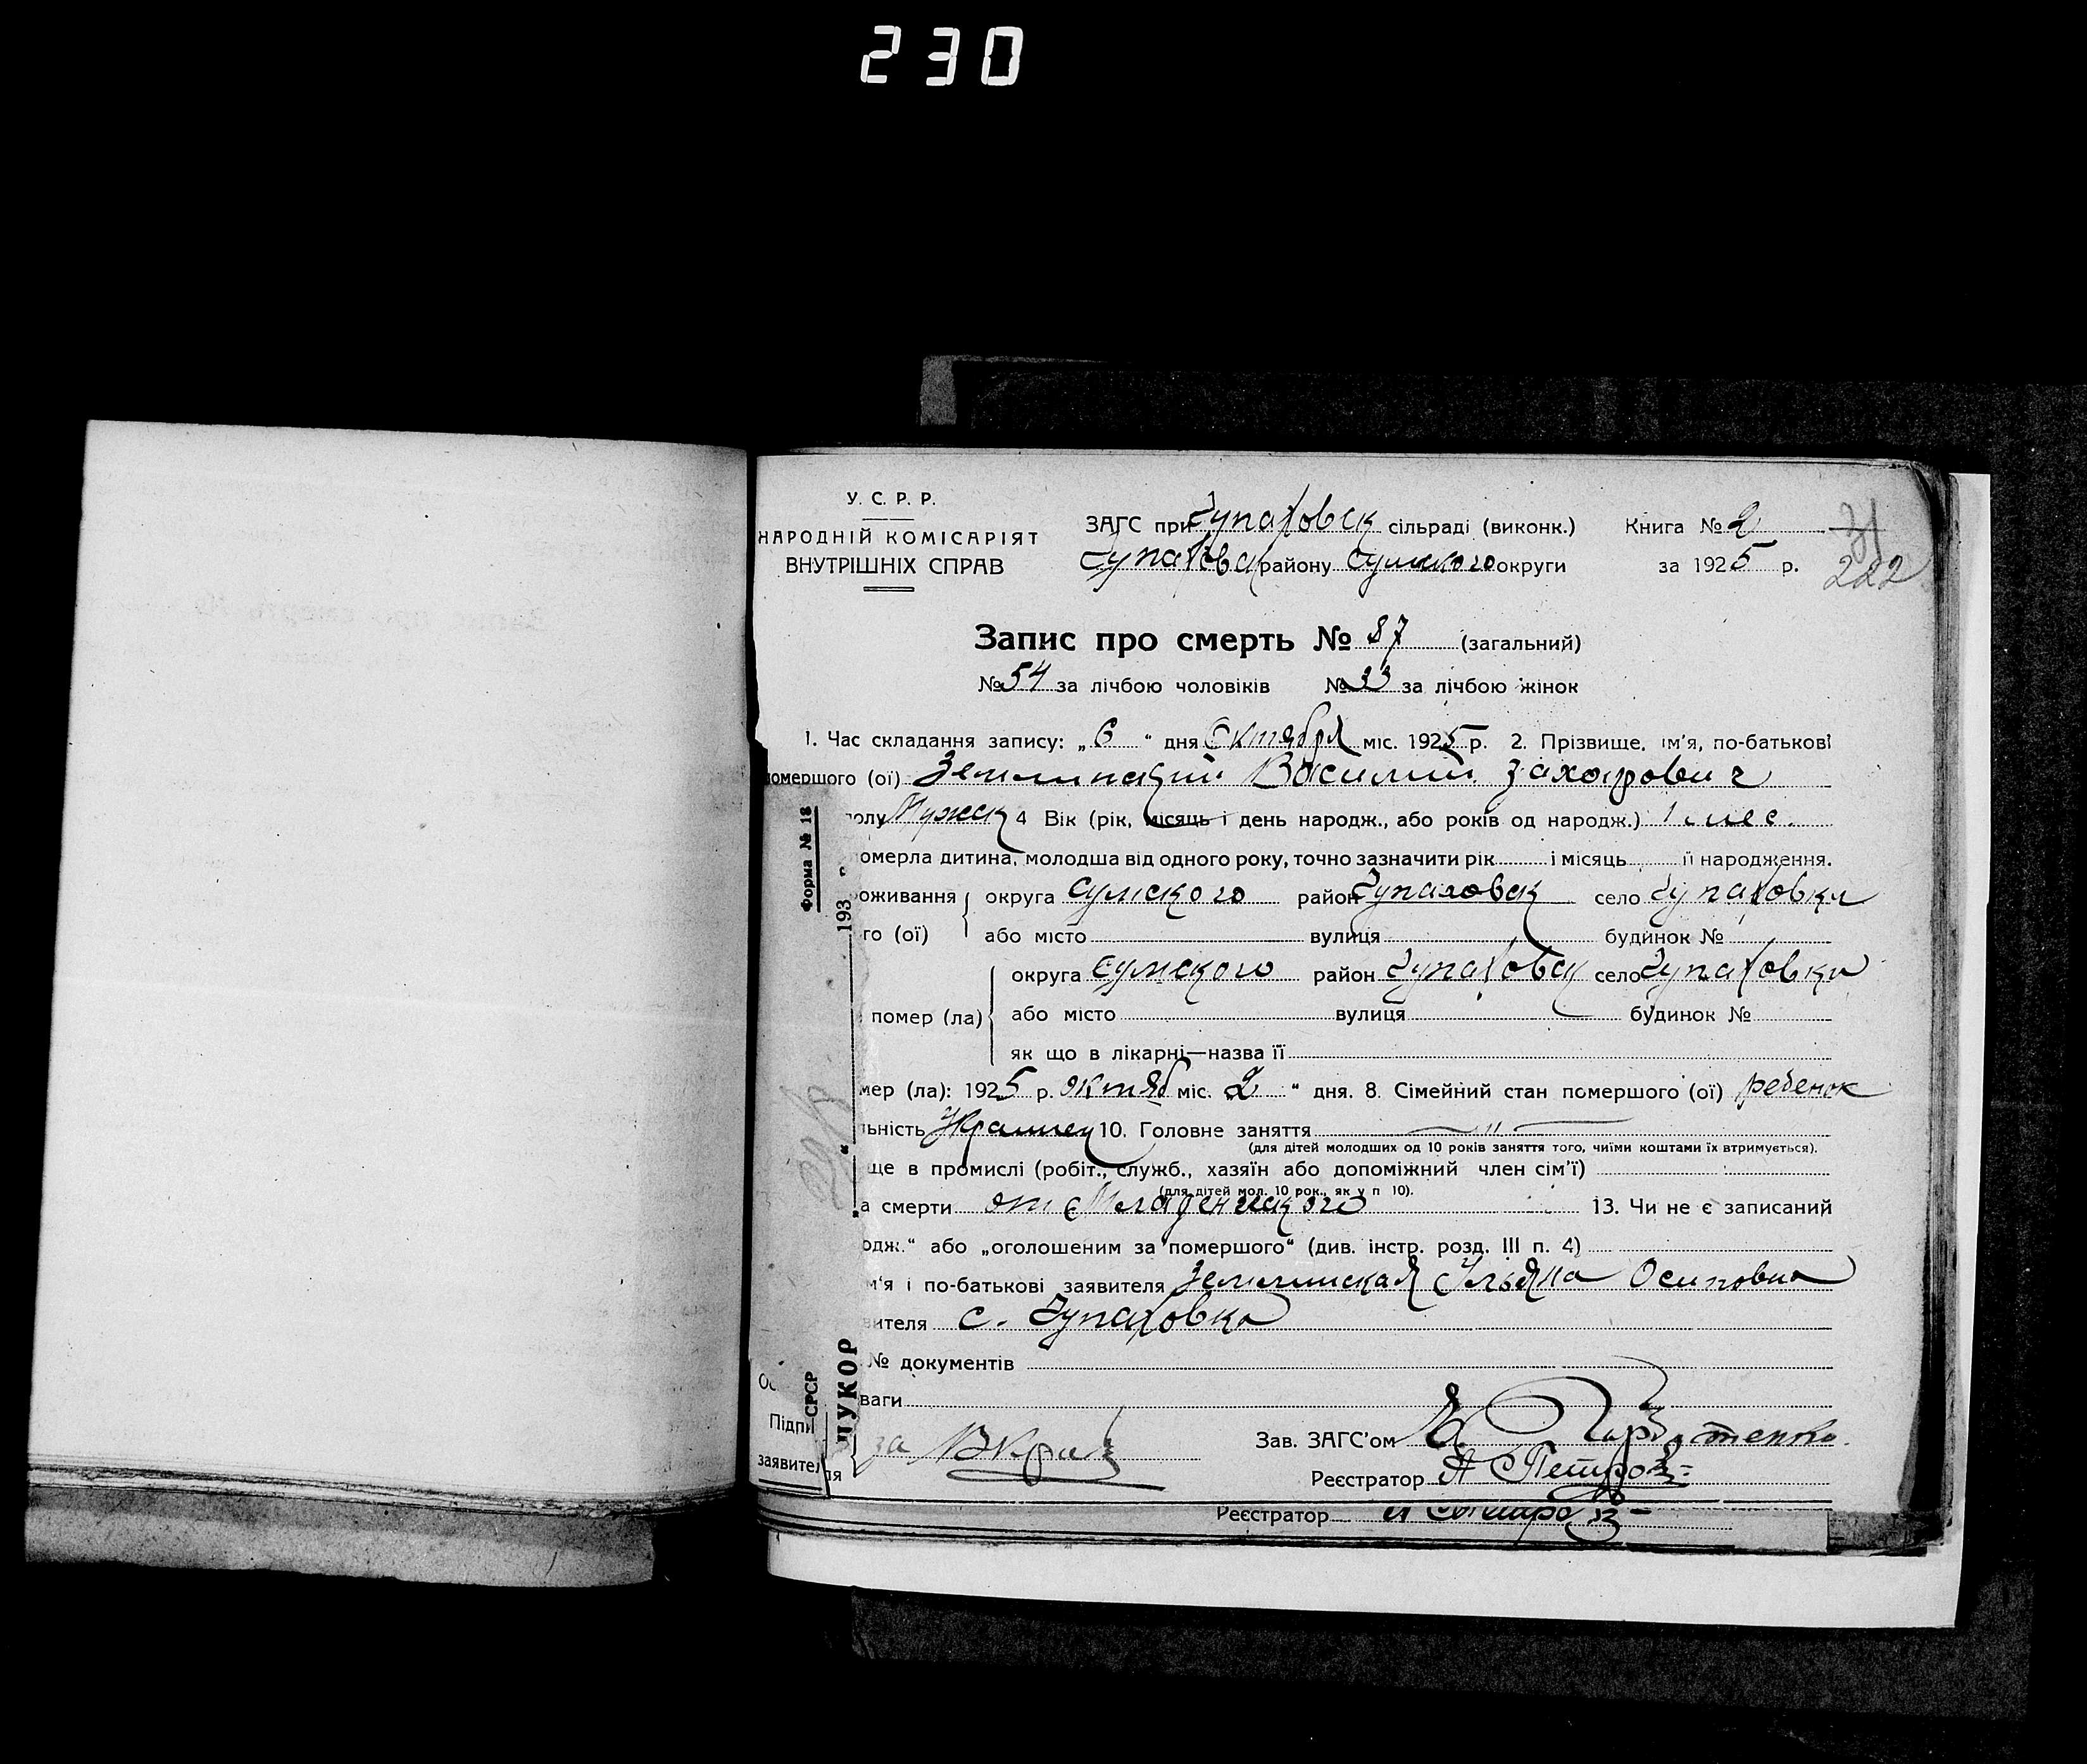 230
У. С. Р. Р.
НАРОДНІЙ КОМІСАРІЯТ
ВНУТРІШНІХ СПРАВ
ЗАГС при Чупаховск сільраді (виконк.)
Чупаховск району Сумского округи
Книга № 2
за 1925 р.
31
222
Запис про смерть № 87 (загальний)
№ 54 за лічбою чоловіків № 33 за лічбою жінок
1. Час складання запису: „ 6 “ дня Октября міс. 1925 р. 2. Прізвище, ім'я, по-батькові
помершого (ої) Землинский Василий Захарович
олу Мужск 4 Вік (рік, місяць і день народж., або років од народж.) 1 мес.
омерла дитина, молодша від одного року, точно зазначити рік і місяць її народження.
роживання округа Сумского район Чупаховск село Чупаховки
го (ої) або місто вулиця будинок №
округа Сумского район Чупаховск село Чупаховки
помер (ла) або місто вулиця будинок №
як що в лікарні—назва її
мер (ла): 1925 р. октяб міс. 2 “ дня. 8. Сімейний стан помершого (ої) ребенок
льність Украинец 10. Головне заняття — „ —
(для дітей молодших од 10 років заняття того, чиїми коштами їх втримується).
ще в промислі (робіт., служб., хазяїн або допоміжний член сім'ї)
(для дітей мол. 10 рок., як у п 10).
а смерти от Младенческого 13. Чи не є записаний
одж.“ або „оголошеним за помершого“ (див. інстр. розд. III п. 4)
м'я і по-батькові заявителя Землинская Ульяна Осиповна
вителя с. Чупаховка
№ документів
ваги
Підпи
заявителя
за
Зав. ЗАГС'ом
Реєстратор А Петров
Реєстратор
Форма № 18
193
СРСР
ЦУКОР